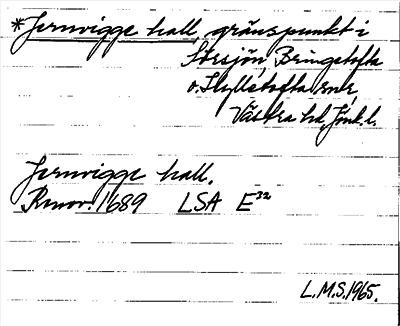 *Jernvigge hall, gränspunkt i
Stesjön Bringetofta
o. Hyllstofta snr,
Västra hd, Jönk. l.
Jernvigge hall.
Renov. 1689 LSA E32
L.M.S. 1965.